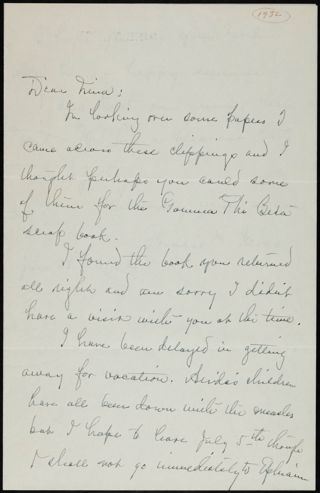 1932
Dear Nina:
In looking over some papers I
came across these clippings and I
thought perhaps you could some
of them for the Gamma Phi Beta
scrap book.
I found the book you returned
all right and am sorry I didn't
have a visit with you at the time.
I have been delayed in getting
away for vacation. children
have all been down with the measles
but I hope to leave July 5th though
I shall not go immediately to Ephraim